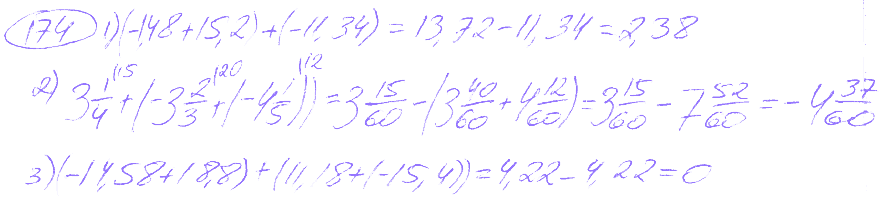 174 1) (-1,48+15,2)+(-11,34)=13,72-11,34=2,38
2) 3 1/4 |15 + (-3 2/3 |20 + (-4 1/5 |12)) = 3 15/60 - (3 40/60 + 4 12/60) = 3 15/60 - 7 52/60 = -4 37/60
3) (-14,58+18,8)+(11,18+(-15,4))=4,22-4,22=0